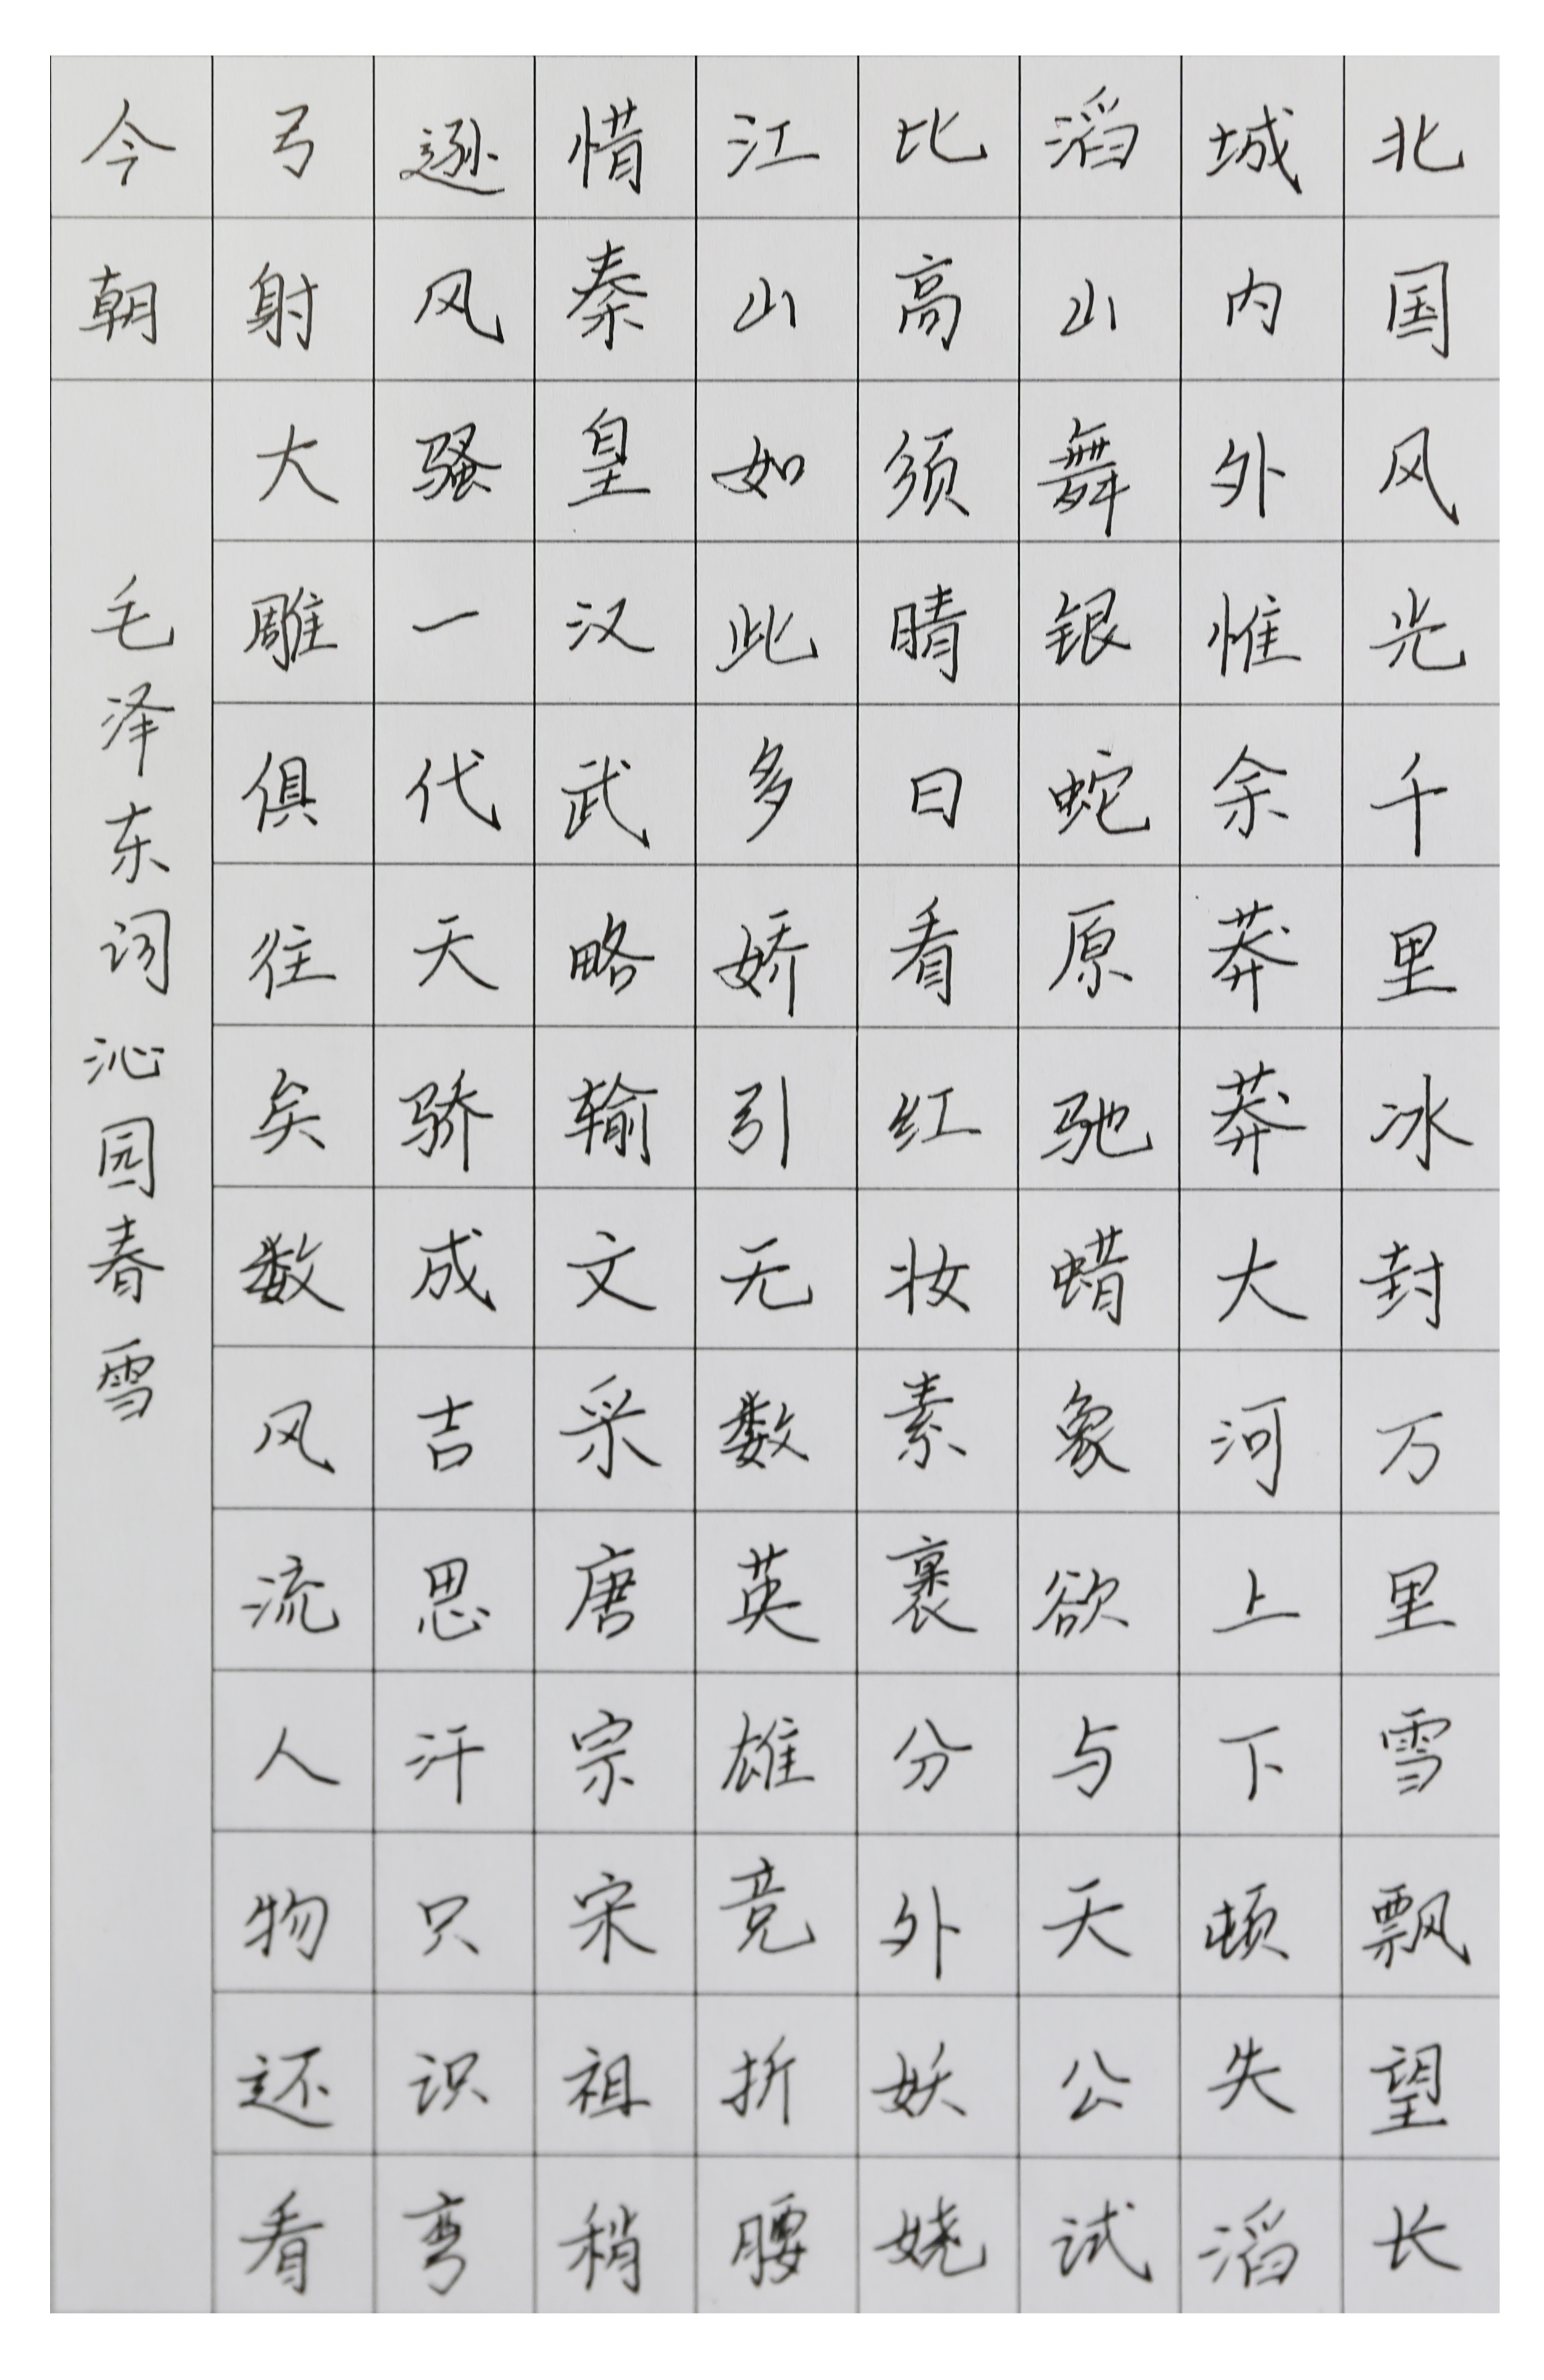 北国风光千里冰封万里雪飘望长
城内外惟余莽莽大河上下顿失滔
滔山舞银蛇原驰蜡象欲与天公试
比高须晴日看红妆素裹分外妖娆
江山如此多娇引无数英雄竞折腰
惜秦皇汉武略输文采唐宗宋祖稍
逊风骚一代天骄成吉思汗只识弯
弓射大雕俱往矣数风流人物还看
今朝
毛泽东词沁园春雪